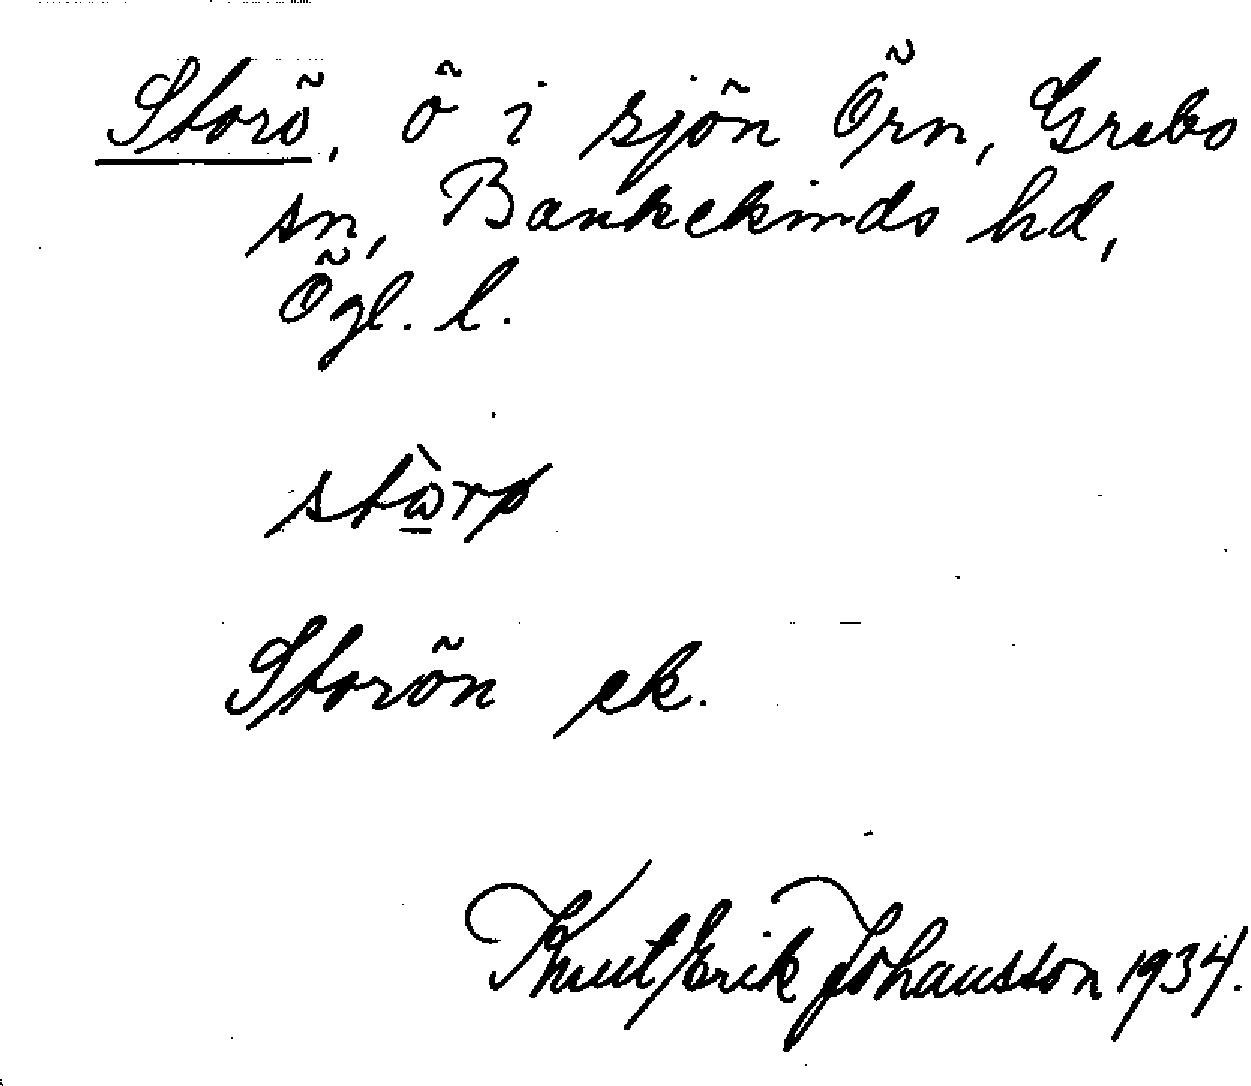 Storö, ö i sjön Örn, Grebo
sn, Bankekinds hd,
Ögl. l.
stɷ̀rø
Storön ek.
Knut Erik Johansson 1934.